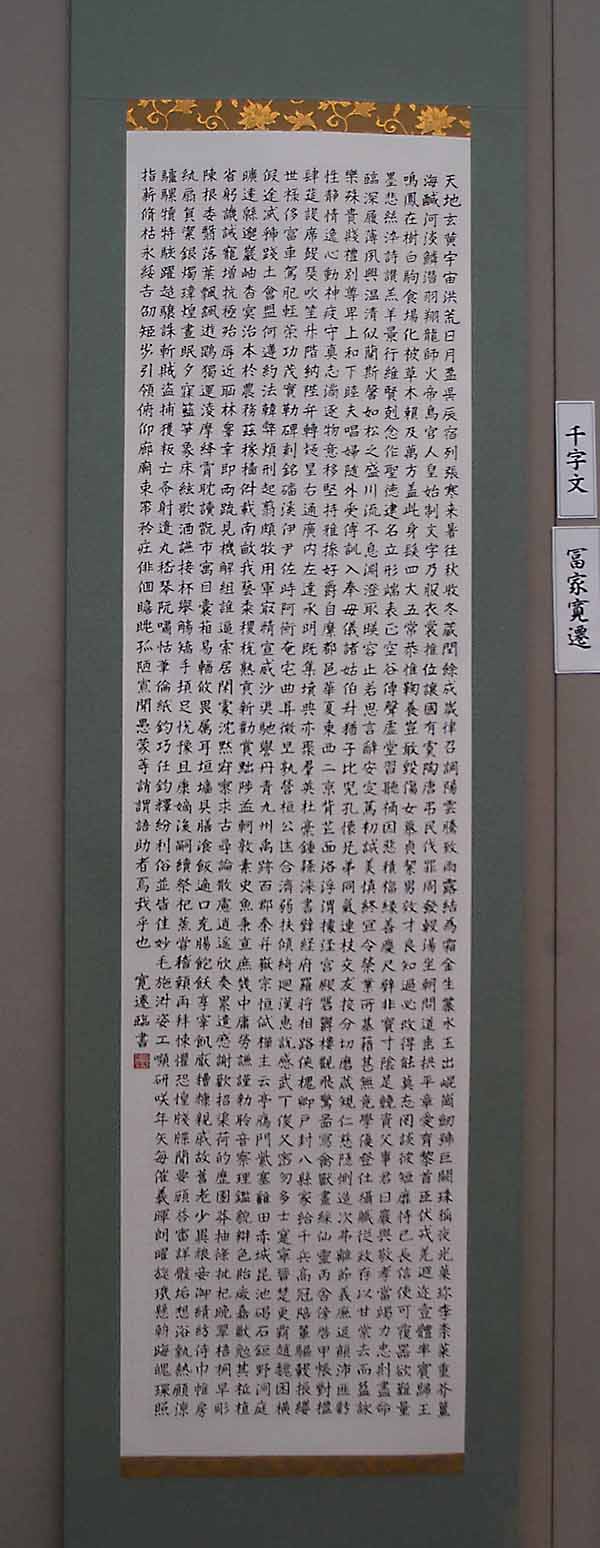 天地玄黄宇宙洪荒日月盈昃辰宿列張寒来暑往秋收冬蔵閏餘成歳律召調陽雲騰致雨露結為霜金生麗水玉出崐崗劒號巨闕珠稱夜光菓珍李柰菜重芥薑
海鹹河淡鱗潜羽翔龍師火帝鳥官人皇始制文字乃服衣裳推位讓國有虞陶唐弔民伐罪周發殷湯坐朝問道垂拱平章愛育黎首臣伏戎羌遐迩壹體率賓歸王
鳴鳳在樹白駒食場化被草木賴及萬方盖此身髮四大五常恭惟鞠養豈敢毀傷女慕貞絜男效才良知過必改得能莫忘罔談彼短靡恃己長信使可覆器欲難量
墨悲絲淬詩讃羔羊景行維賢剋念作聖徳建名立形端表正空谷傳聲虚堂習聽禍因悪積福縁善慶尺璧非寶寸陰是競資父事君曰嚴與敬孝當竭力忠則盡命
臨深履薄夙興温清似蘭斯馨如松之盛川流不息淵澄取暎容止若思言辭安定篤初誠美慎終宜令榮業所基藉甚無竟學優登仕攝職従政存以甘棠去而益詠
樂殊貴賤禮別尊卑上和下睦夫唱婦随外受傅訓入奉母儀諸姑伯叔猶子比兒孔懐兄弟同氣連枝交友投分切磨箴規仁慈隠惻造次弗離節義廉退顛沛匪虧
性静情逸心動神疲守真志満逐物意移堅持雅操好爵自縻都邑華夏東西二京背芒面洛浮渭據涇宮殿磐欝樓觀飛驚圖寫禽獸畫綵仙靈丙舍傍啓甲帳對楹
肆筵設席鼓瑟吹笙升階納陛弁轉疑星右通廣内左達承明既集墳典亦聚羣英杜稾鍾隷漆書壁経府羅将相路侠槐卿戸封八縣家給千兵高冠陪輦驅轂振纓
世禄侈富車駕肥軽策功茂實勒碑刻銘磻溪伊尹佐時阿衡奄宅曲阜微旦孰營桓公匡合濟弱扶傾綺廻漢恵説感武丁俊乂密勿多士寔寧晉楚更覇趙魏困横
假途滅虢踐土會盟何遵約法韓弊煩刑起翦頗牧用軍㝡精宣威沙漠馳譽丹青九州禹跡百郡秦并嶽宗恒岱禪主云亭鴈門紫塞雞田赤城昆池碣石鉅野洞庭
曠遠緜邈巖岫杳冥治本於農務茲稼穡俶載南畝我藝黍稷税熟貢新勸賞黜陟孟軻敦素史魚秉直庶幾中庸勞謙謹勅聆音察理鑑貌辯色貽厥嘉猷勉其祗植
省躬譏誡寵增抗極殆辱近耻林睾幸即両疏見機解組誰逼索居閑處沈黙寂寥求古尋論散慮逍遥欣奏累遣慼謝歡招渠荷的歴園莽抽條枇杷晩翠梧桐早彫
陳根委翳落葉飄颻遊鵾獨運淩摩絳霄耽讀翫市寓目囊箱易輶攸畏属耳垣墻具膳飡飯適口充腸飽飫享宰飢厭糟糠親戚故舊老少異粮妾御績紡侍巾帷房
紈扇員潔銀燭瑋煌晝眠夕寐藍笋象床絃歌酒讌接杯舉觴矯手頓足忱豫且康嫡後嗣續祭祀蒸嘗稽顙再拜悚懼恐惶牋牒簡要顧答審詳骸垢想浴執熱願凉
驢騾犢特駭躍超驤誅斬賊盗捕獲叛亡布射遼丸嵇琴阮嘯恬筆倫紙鈞巧任釣釋紛利俗並皆佳妙毛施淑姿工嚬研咲年矢毎催羲暉朗曜旋璣懸斡晦魄環照
指薪脩祜永綏吉劭矩歩引領俯仰廊廟束帯矜荘俳佪瞻眺孤陋寡聞愚蒙等誚謂語助者焉哉乎也 寛遷臨書
千字文
冨家寛遷